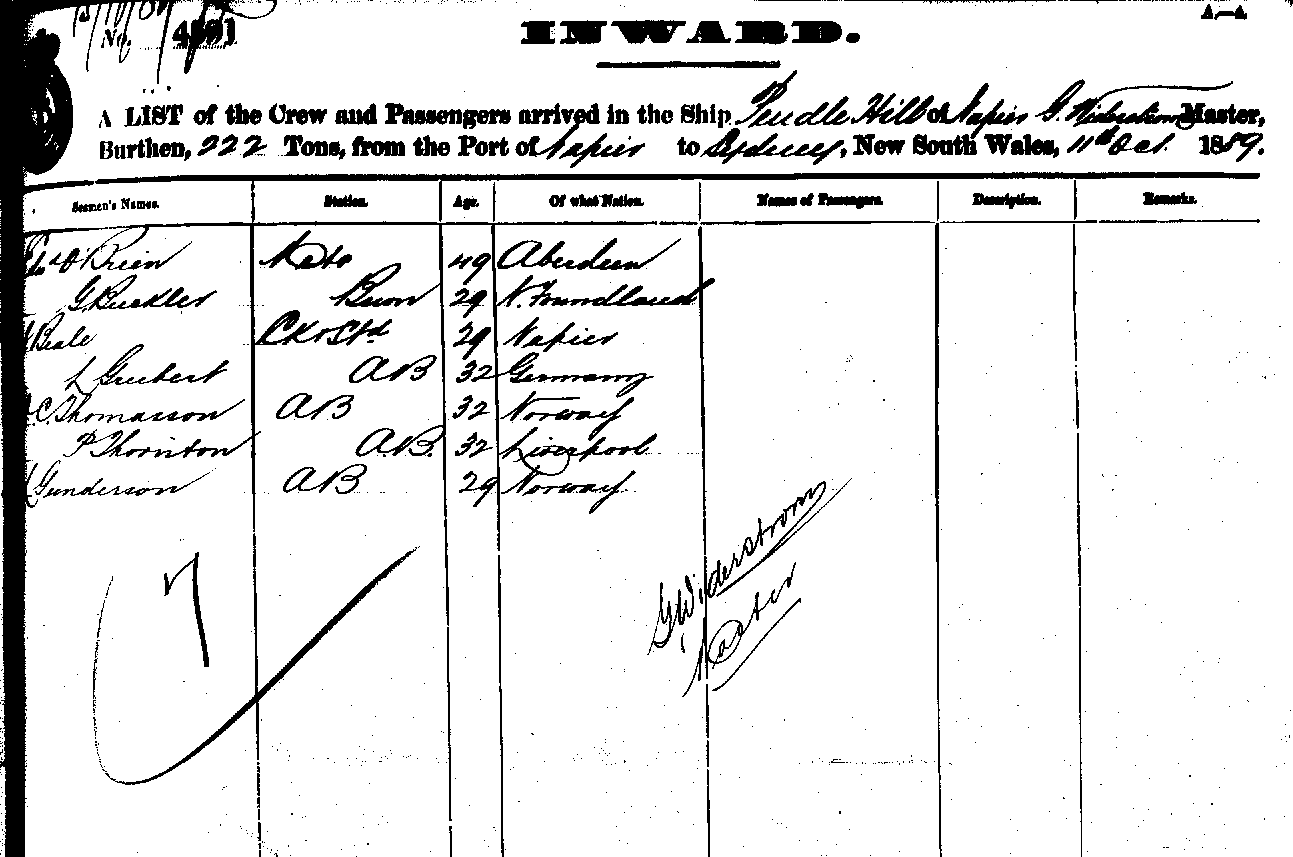 No.
INWARD.
A LIST of the Crew and Passengers arrived in the Ship Pendle Hill of Napier G. Widerstrom Master,
Burthen, 222 Tons, from the Port of Napier to Sydney, New South Wales, 11th Oct 1889.
Seamen's Names. Station. Age. Of what Nation. Names of Passengers. Description. Remarks.
O'Brien Mate 49 Aberdeen
G Buckler Bsun 29 N. Foundland
Beale Ck & Std 29 Napier
L Guebert AB 32 Germany
C. Thomasson AB 32 Norway
P Thornton A.B. 32 Liverpool
Gunderson AB 29 Norway
7
G Widerstrom
Master